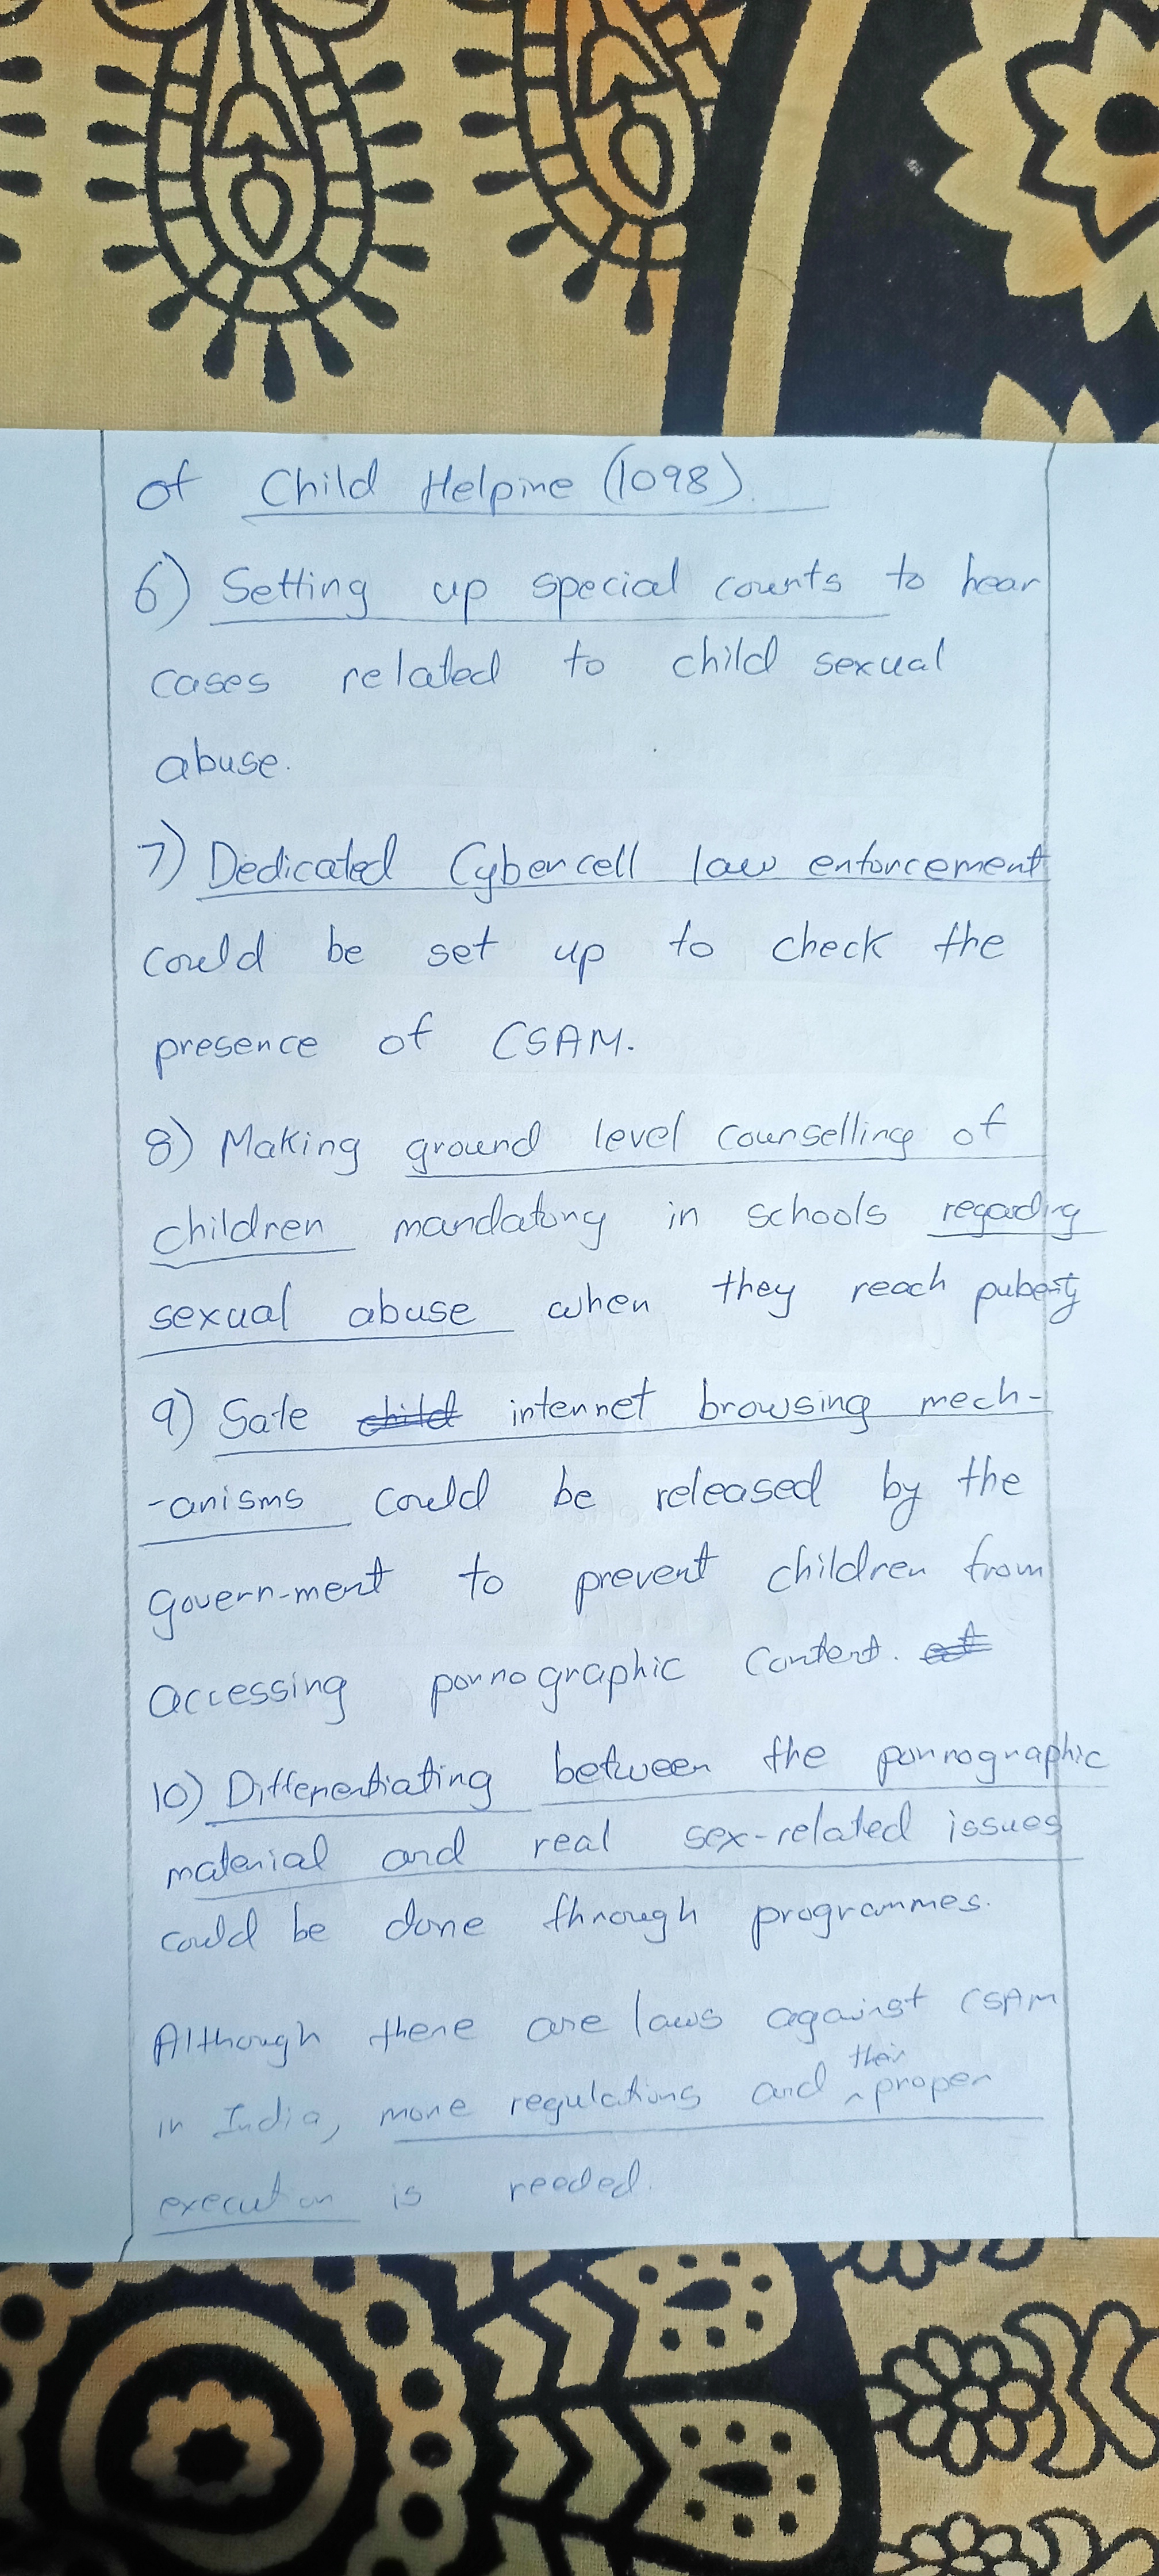 of Child Helpine (1098).
6) Setting up special courts to hear
cases related to child sexual
abuse.
7) Dedicated Cybercell law enforcement
could be set up to check the
presence of CSAM.
8) Making ground level counselling of
children mandatory in schools regarding
sexual abuse when they reach puberty
9) Safe child internet browsing mech-
-anisms could be released by the
govern-ment to prevent children from
accessing pornographic content.
10) Differentiating between the pornographic
material and real sex-related issues
could be done through programmes.
Although there are laws against CSAM
in India, more regulations and their proper
execution is needed.